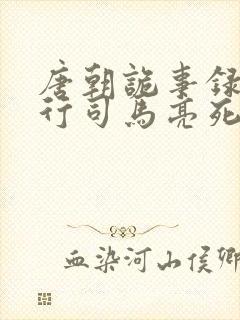 唐朝诡事录
行司马亮死
血染河山侯卿